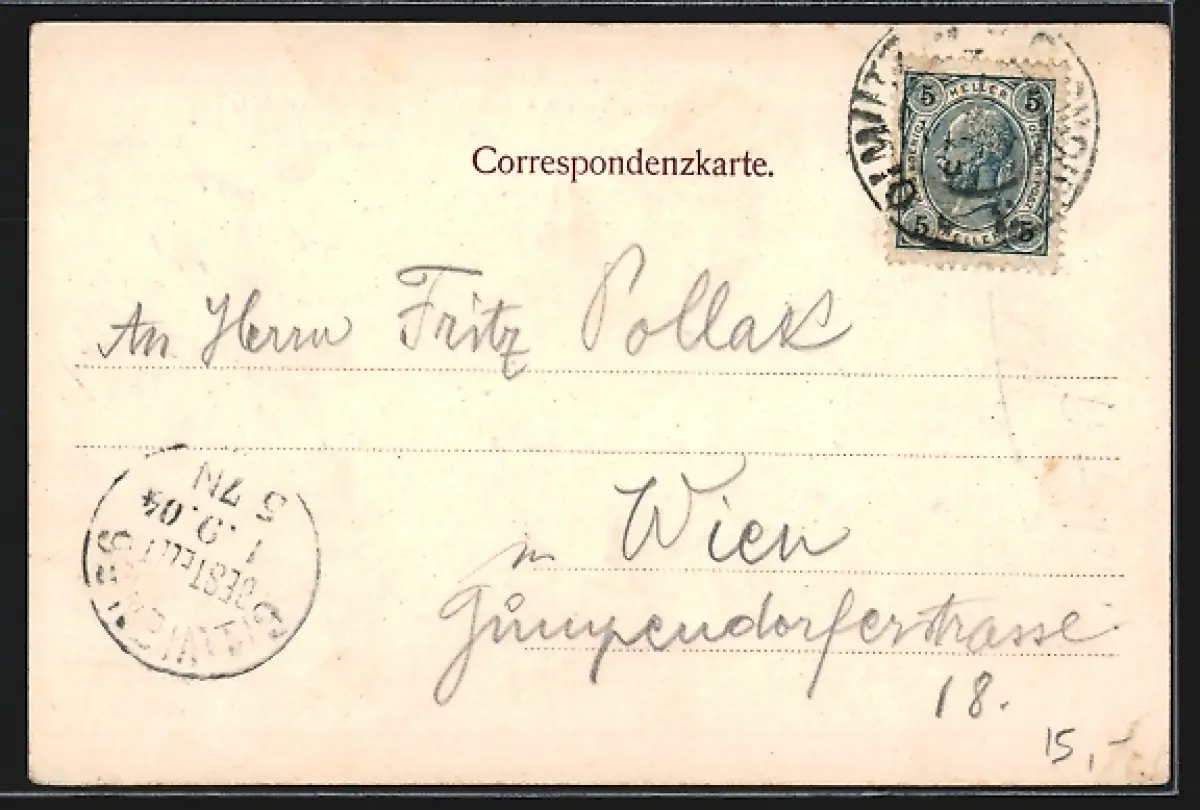 5 HELLER 5
5 HELLER 5
Correspondenzkarte.
An Herrn Fritz Pollak
Wien
Gumpendorferstrasse
18.
5 7N
1 .9. 04
BESTELLT
15,-